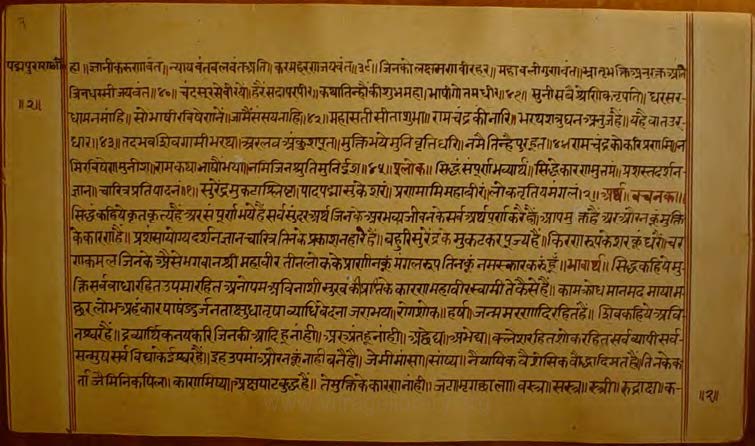 पद्मपुराणजी
॥२॥
हा॥ज्ञानीकरुणावंत॥न्यायवंतबलवंतअति॥करमहरणजयवंत॥३९॥जिनकोलक्षमणवीरहर॥महाबलीगुणवंत॥भ्रातृभक्तिअनुरक्तअति
जिनधर्मीजयवंत॥४०॥चंदसूरसेवीरये॥हरैसदापरपीर॥कथातिन्हौंकीशुभमहा॥भाषीगोतमधीर॥४१॥सुनीसबैश्रेणिकनृपति॥धरसर
धामनमांहि॥सोभाषीरविषेणनें॥जामैंसंसयनांहि॥४२॥महासतीसीताशुभा॥रामचंद्रकीनारि॥भरथशत्रुघनअनुजहैं॥यहैबातउर
धार॥४३॥तदभवशिवगामीभरथ॥अरलवअंकुशपूत॥मुक्तिभयेमुनिवृत्तिधरि॥नमैतिन्हैपुरहूत॥४४॥रामचंद्रकोकरिप्रणाम॥न
मिरविषेणमुनीश॥रामकथाभाषौंभया॥नमिजिनश्रुतिमुनिईश॥४५॥श्लोक॥सिद्धंसंपूर्णभव्यार्थं॥सिद्धेःकारणमुत्तमं॥प्रशस्तदर्शन
ज्ञान॥चारित्रप्रतिपादनं॥१॥सुरेंद्रमुकटाश्लिष्ट॥पादपद्मांसुकेशरं॥प्रणमामिमहावीरं॥लोकत्रितयमंगलं॥२॥अर्थ॥बचनक॥
सिद्धकहियेकृतकृत्यहैं॥अरसंपूर्णभयेहैंसर्वसुंदरअर्थजिनके॥अरभव्यजीवनकेसर्वअर्थपूर्णकरैहैं॥आपमुक्तहैं॥अरऔरनकूंमुक्ति
केकारणहैं॥प्रशंसायोग्यदर्शनज्ञानचारित्रतिनकेप्रकाशनहारेहैं॥बहुरिसुरेंद्रकेमुकटकरपूज्यहैं॥किरणरूपकेशरकूंधरैं॥चर
णकमलजिनके॥ऐसेभगवानश्रीमहावीरतीनलोककेप्राणीनकूंमंगलरूपतिनकूंनमस्कारकरुंहूं॥भावार्थ॥सिद्धकहियेमु
क्तिसर्वबाधारहितउपमारहितअनोपमअविनाशीसुखकीप्राप्तिकेकारणमहावीरस्वामीतेकैसेहैं॥कामक्रोधमानमदमायाम
छरलोभअहंकारपाषंडदुर्जनताक्षुधातृषाव्याधिवेदनाजराभय॥रोगशोक॥हर्ष॥जन्ममरणादिरहितहैं॥शिवकहियेअवि
नश्वरहैं॥द्रव्यार्थिकनयकरिजिनकीआदिहूनांही॥अरअंतहूनांही॥अछेद्य॥अभेद्य॥क्लेशरहितशोकरहितसर्वव्यापीसर्व
सन्मुखसर्वविद्याकेईश्वरहैं॥इहउपमाऔरनकूंनांहीबनैहै॥जेमीमांसा॥सांख्य॥नैयायिकवैशेसिकबौद्धादिमतहैं॥तिनकेक
र्ताजैमिनिकपिल॥काणभिष्य॥अक्षपाटबुद्धहैं॥तेमुक्तिकेकारणनांही॥जटामृगछाला॥वस्त्रा॥सस्त्र॥स्त्री॥रुद्राक्ष॥क-
॥२॥